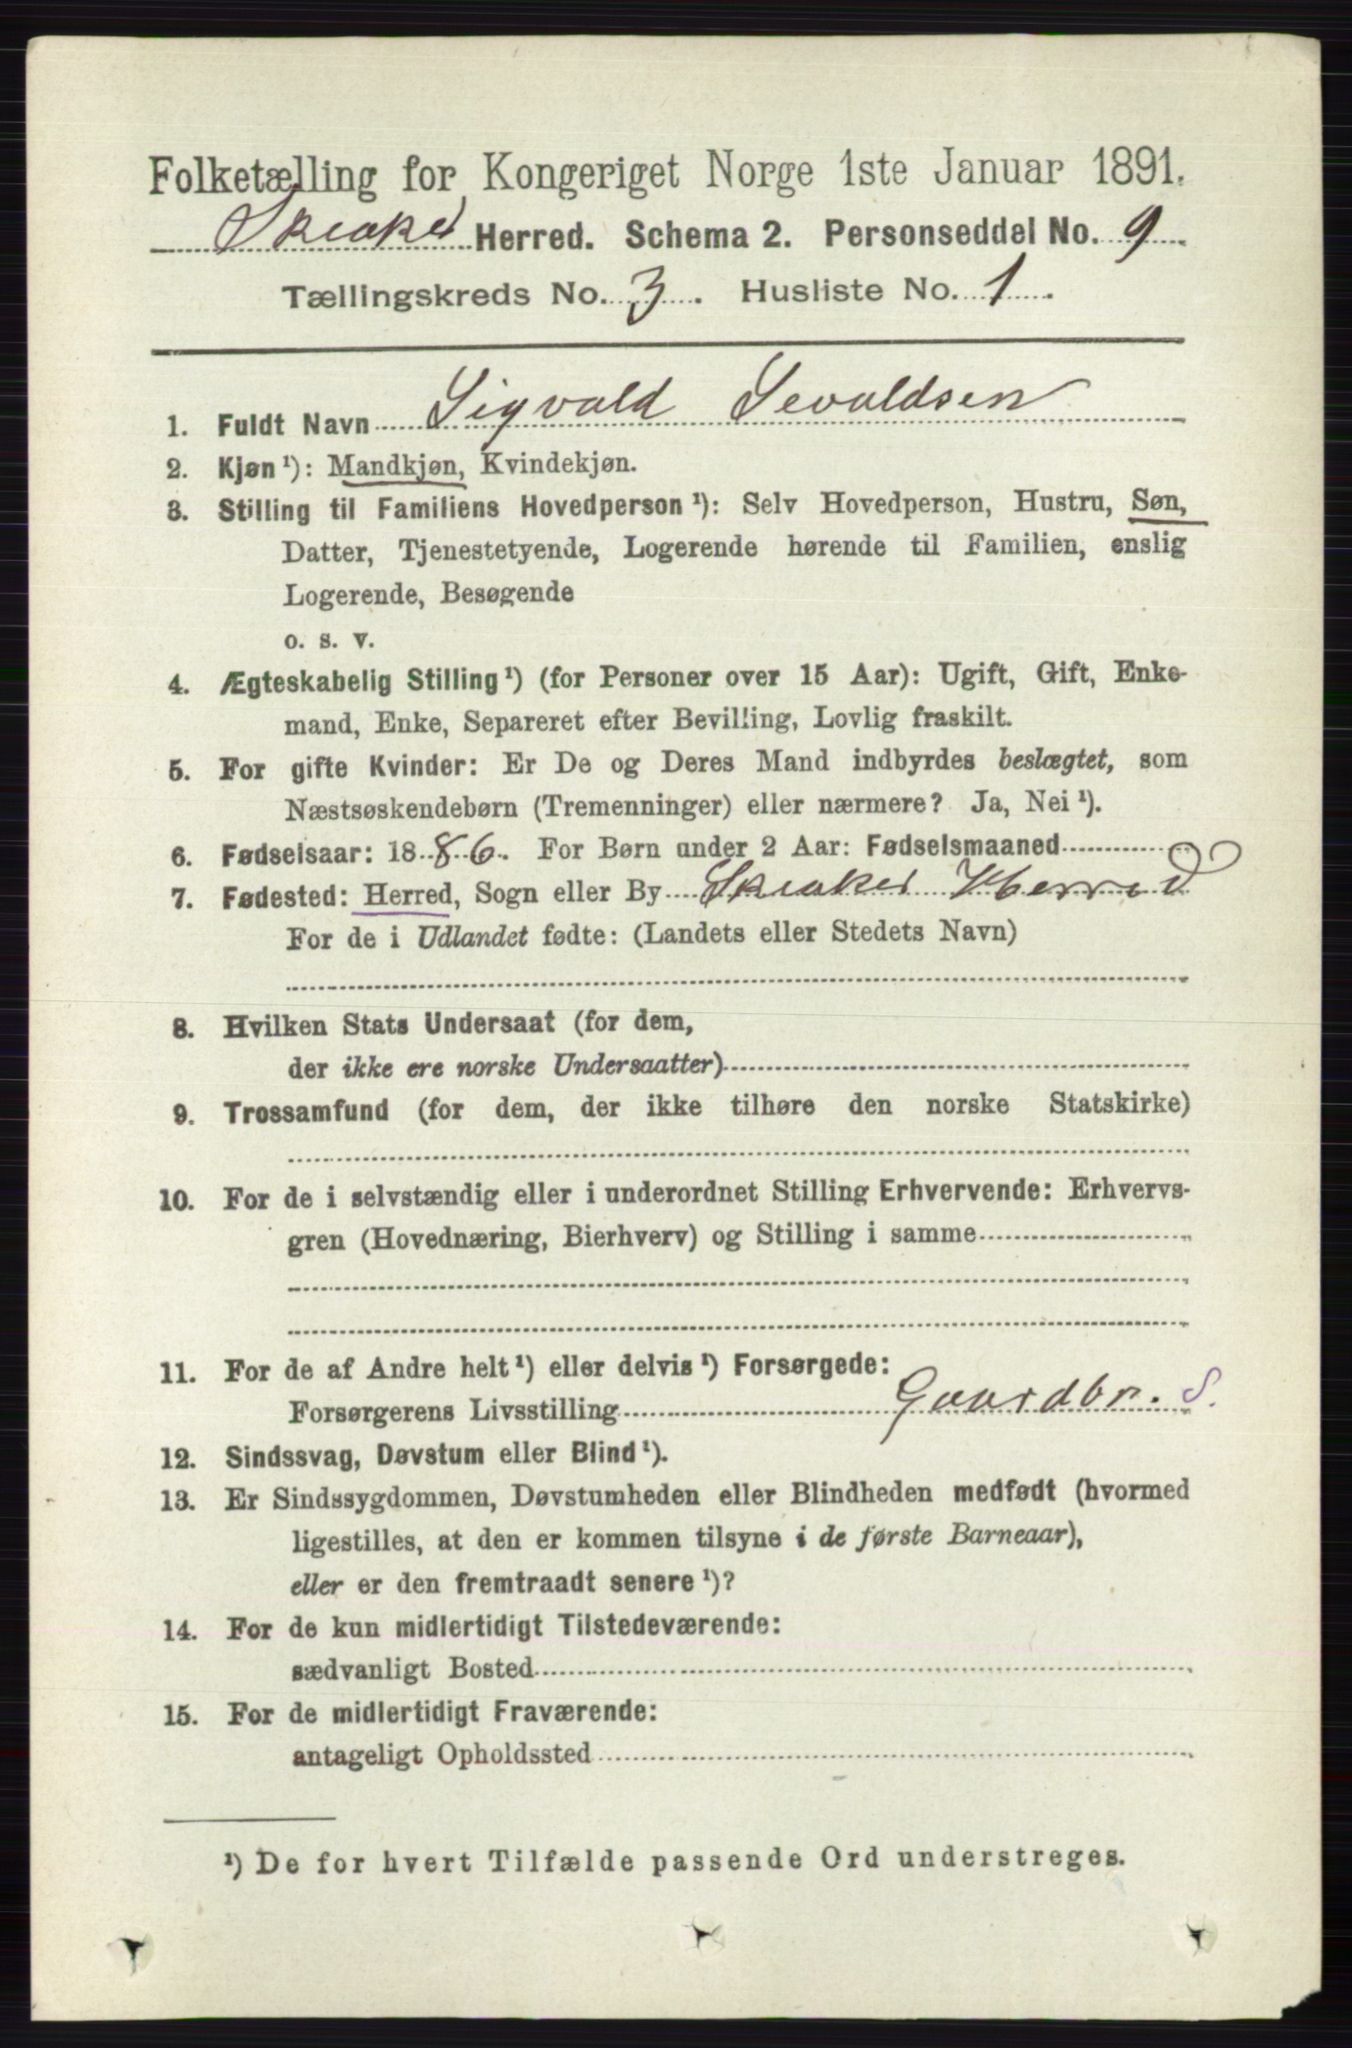 Folketælling for Kongeriget Norge 1ste Januar 1891.
Skeaker Herred. Schema 2. Personseddel No. 9
Tællingskreds No. 3. Husliste No. 1.
1. Fuldt Navn Sigvald Sevaldsen
2. Kjøn ¹): Mandkjøn, Kvindekjøn.
3. Stilling til Familiens Hovedperson ¹): Selv Hovedperson, Hustru, Søn,
Datter, Tjenestetyende, Logerende hørende til Familien, enslig
Logerende, Besøgende
o. s. v.
4. Ægteskabelig Stilling ¹) (for Personer over 15 Aar): Ugift, Gift, Enke-
mand, Enke, Separeret efter Bevilling, Lovlig fraskilt.
5. For gifte Kvinder: Er De og Deres Mand indbyrdes beslægtet, som
Næstsøskendebørn (Tremenninger) eller nærmere? Ja, Nei ¹).
6. Fødselsaar: 1886. For Børn under 2 Aar: Fødselsmaaned
7. Fødested: Herred, Sogn eller By Skeaker Herred
For de i Udlandet fødte: (Landets eller Stedets Navn)
8. Hvilken Stats Undersaat (for dem,
der ikke ere norske Undersaatter)
9. Trossamfund (for dem, der ikke tilhøre den norske Statskirke)
10. For de i selvstændig eller i underordnet Stilling Erhvervende: Erhvervs-
gren (Hovednæring, Bierhverv) og Stilling i samme
11. For de af Andre helt ¹) eller delvis ¹) Forsørgede:
Forsørgerens Livsstilling Gaardbr. S.
12. Sindssvag, Døvstum eller Blind ¹).
13. Er Sindssygdommen, Døvstumheden eller Blindheden medfødt (hvormed
ligestilles, at den er kommen tilsyne i de første Barneaar),
eller er den fremtraadt senere ¹)?
14. For de kun midlertidigt Tilstedeværende:
sædvanligt Bosted
15. For de midlertidigt Fraværende:
antageligt Opholdssted
¹) De for hvert Tilfælde passende Ord understreges.